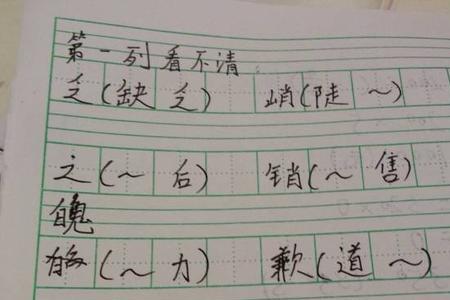 第一列看不清
乏(缺乏) 峭(陡～)
之(～后) 销(～售)
魄
魄(～力) 歉(道～)